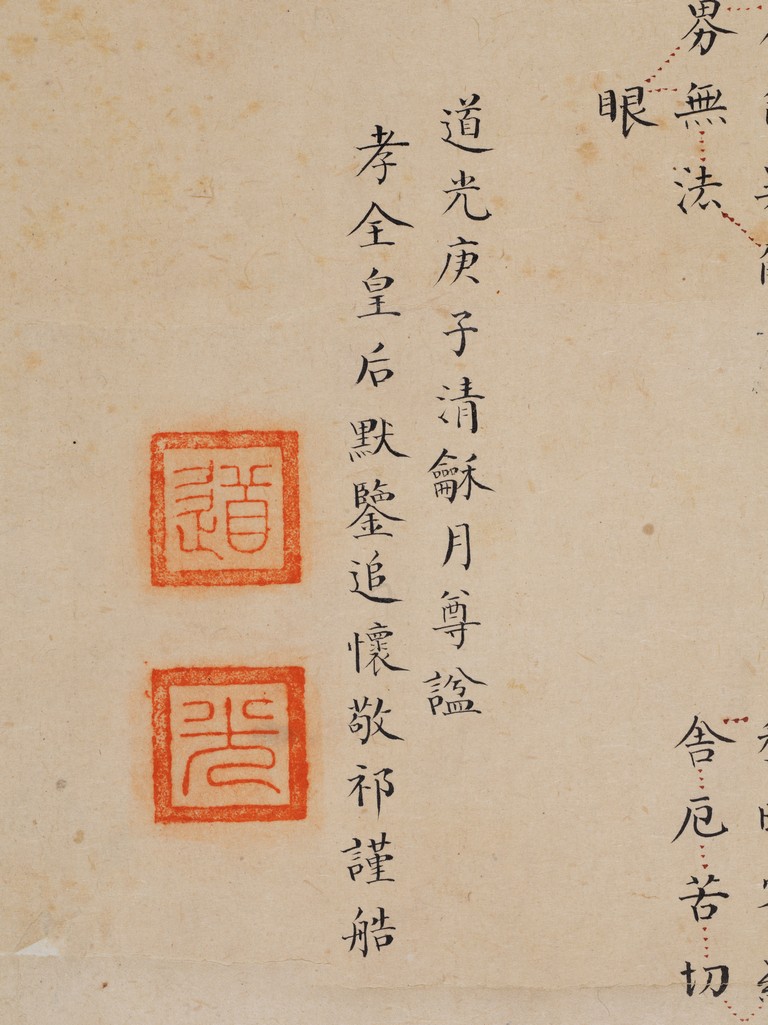 界無法
舍厄苦切
眼
道光庚子清龢月尊諡
孝全皇后默鑒追懷敬祁謹艁
道
光